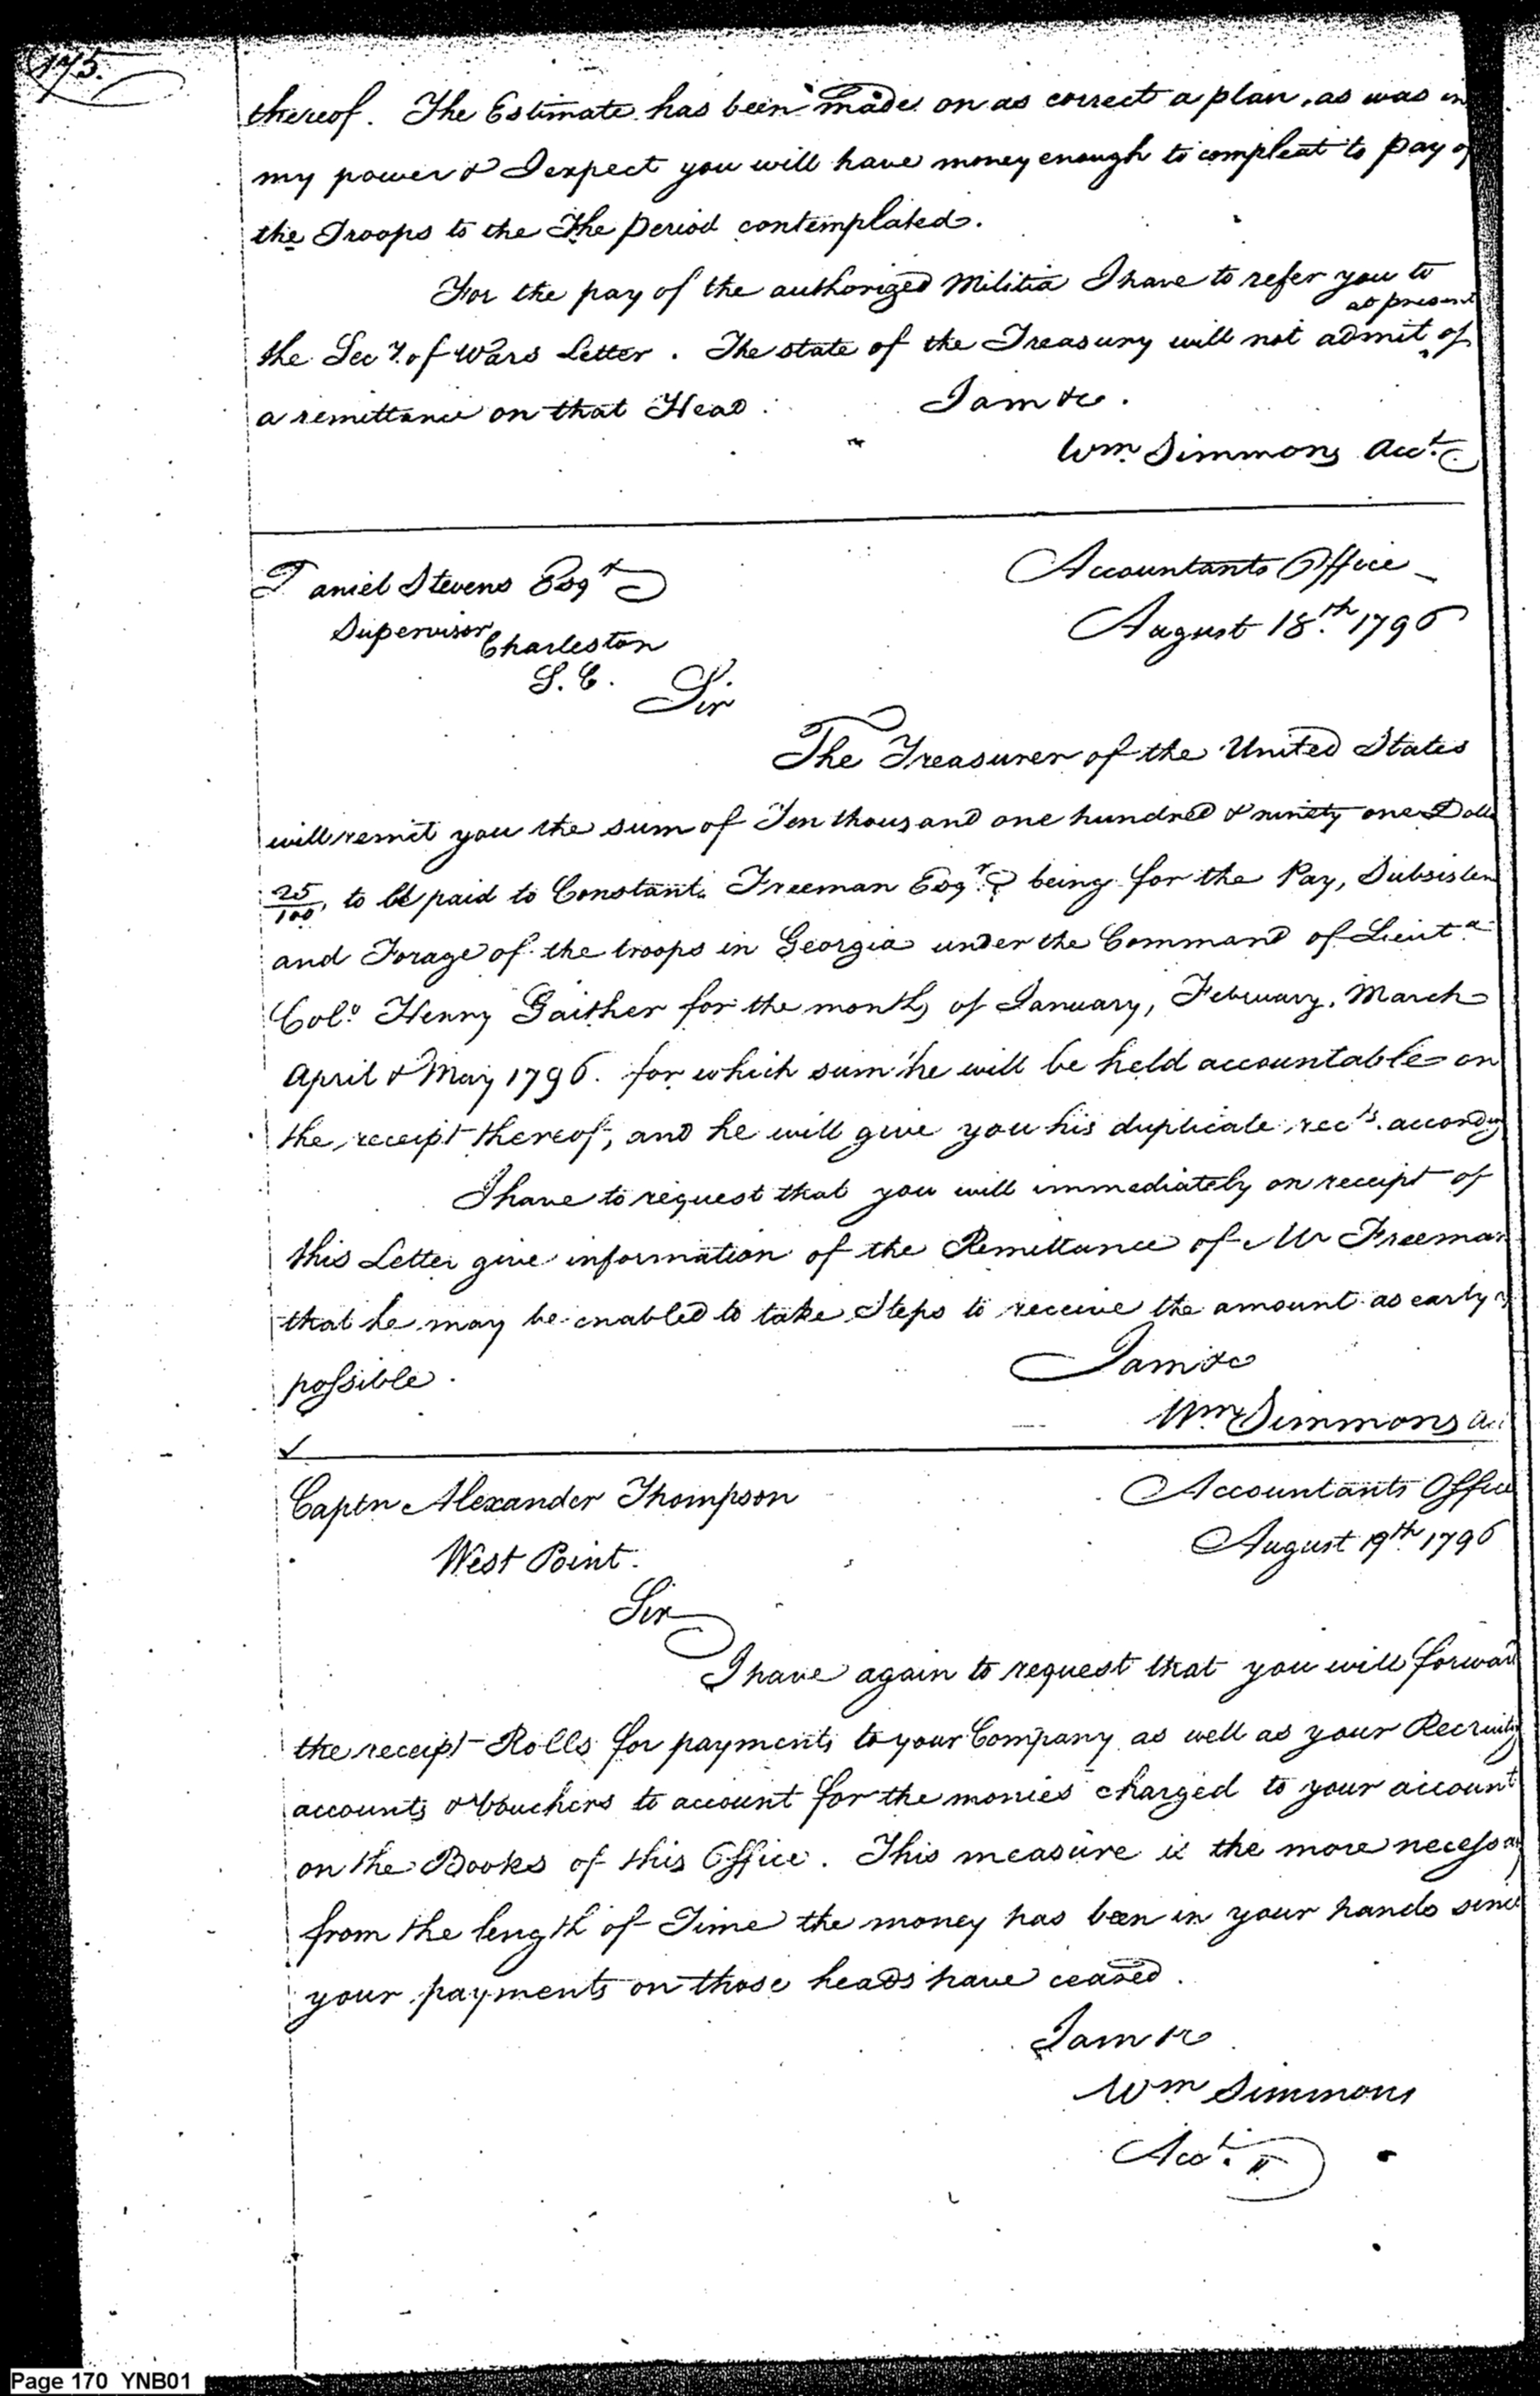 175.
thereof. The Estimate has been made on as correct a plan, as was in
my power & I expect you will have money enough to compleat to pay of
the Troops to the The period contemplated.
For the pay of the authorized Militia I have to refer you to
at present
the Secy. of Wars Letter. The state of the Treasury will not admit of
a remittance on that Head. I am &c.
Wm. Simmons Acct.
Daniel Stevens Esqr
Accountants Office
Supervisor
August 18th. 1796
Charleston
S. C.
Sir
The Treasurer of the United States
will remit you the sum of Ten thousand one hundred & ninety one Dolls
25/100, to be paid to Constant. Freeman Esqr. being for the Pay, Subsisten
and Forage of the troops in Georgia under the Command of Lieut.
Colo. Henry Gaither for the months of January, February, March
April & May 1796. for which sum he will be held accountable on
the receipt thereof, and he will give you his duplicate rects. accordg
I have to request that you will immediately on receipt of
this Letter give information of the Remittance of Mr Freeman
that he may be enabled to take Steps to receive the amount as early as
possible.
I am &c
Wm. Simmons Ac
Captn Alexander Thompson
Accountants Office
West Point.
August 19th. 1796
Sir
I have again to request that you will forward
the receipt Rolls for payments to your Company as well as your Recruitg
accounts & Vouchers to account for the monies charged to your account
on the Books of this Office. This measure is the more necessary
from the length of Time the money has been in your hands since
your payments on those heads have ceased.
I am &c
Wm Simmons
Acct.
Page 170 YNB01